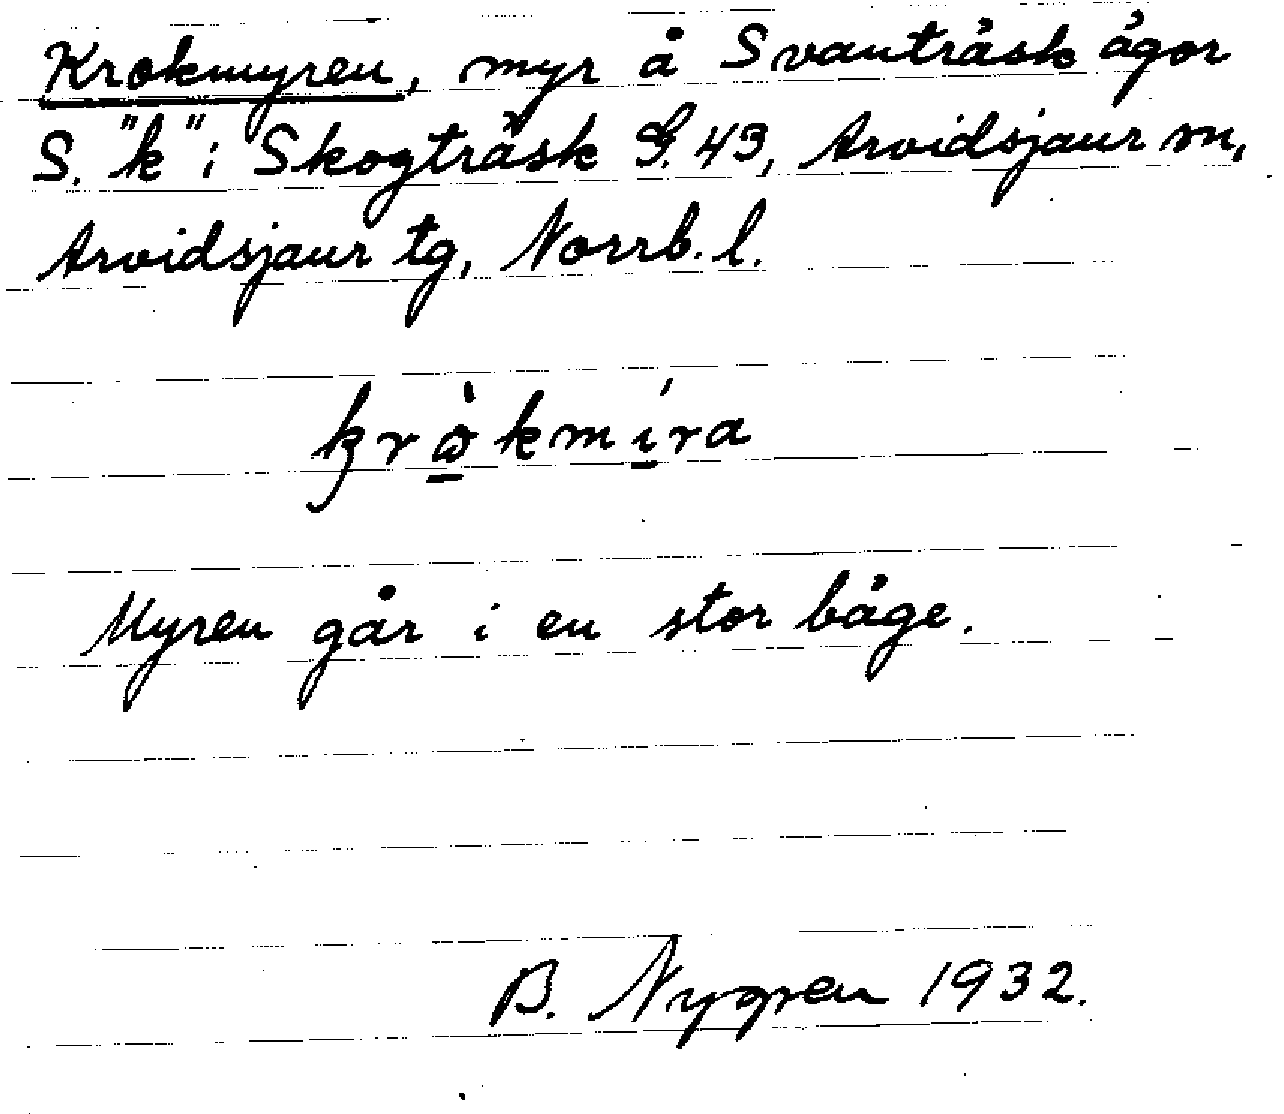 Krokmyren, myr å Svanträsk ägor
S. "k" i Skogträsk G. 43, Arvidsjaur sn,
Arvidsjaur tg, Norrb. l.
krò̱kmí̱ra
Myren går i en stor båge.
B. Nygren 1932.